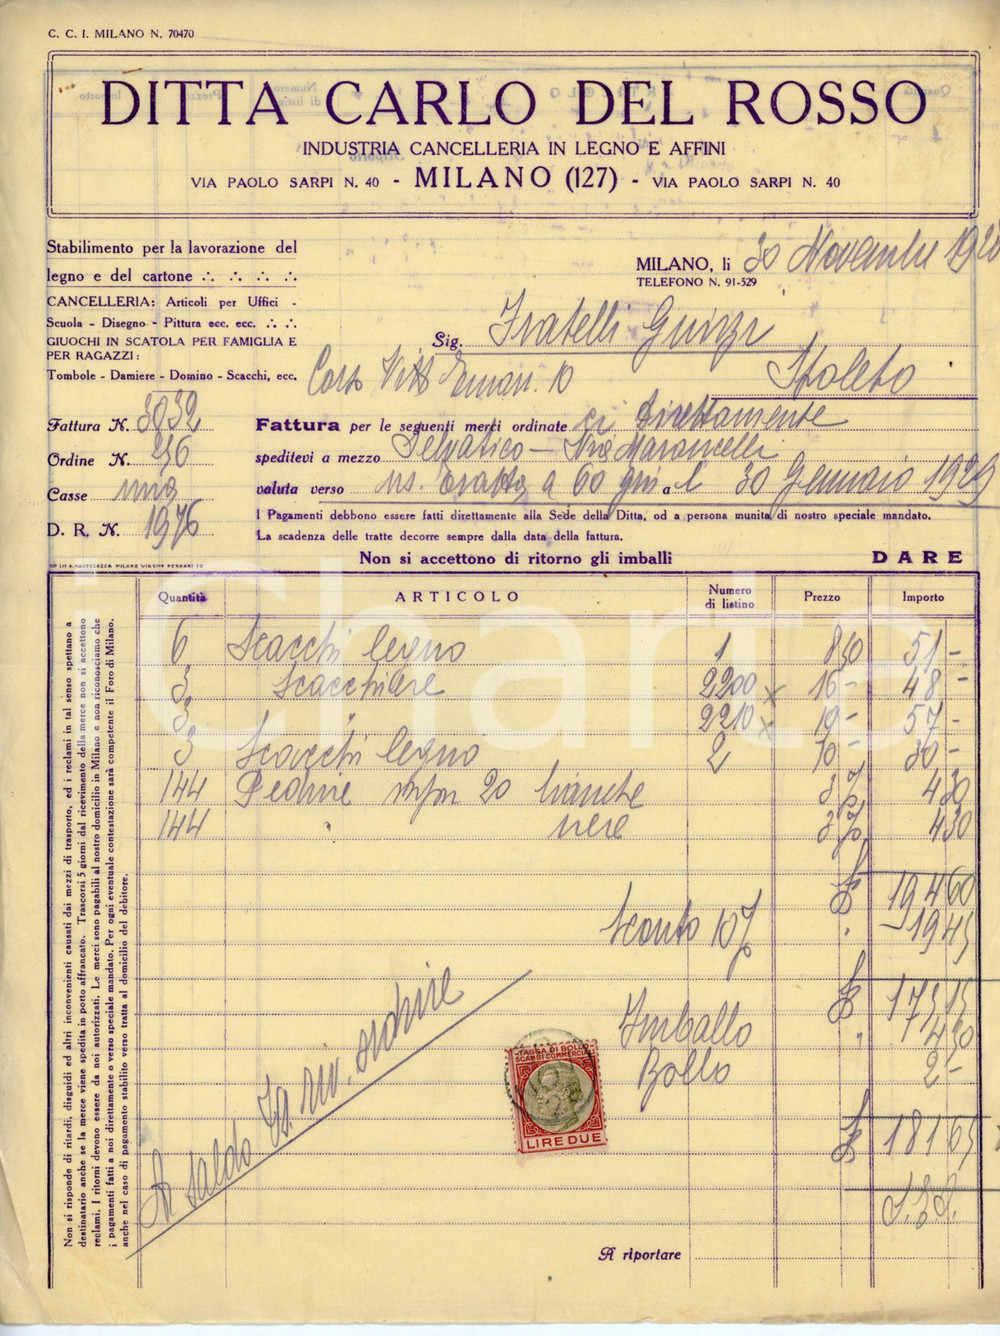 C. C. I. MILANO N. 70470
DITTA CARLO DEL ROSSO
INDUSTRIA CANCELLERIA IN LEGNO E AFFINI
VIA PAOLO SARPI N. 40 - MILANO (127) - VIA PAOLO SARPI N. 40
Stabilimento per la lavorazione del
legno e del cartone
CANCELLERIA: Articoli per Uffici -
Scuola - Disegno - Pittura ecc. ecc.
GIUOCHI IN SCATOLA PER FAMIGLIA E
PER RAGAZZI:
Tombole - Damiere - Domino - Scacchi, ecc.
MILANO, li 30 Novembre
TELEFONO N. 91-529
Sig. Fratelli
Corso Vitt Eman. 10 Spoleto
Fattura N. 3032
Ordine N. 256
Casse una
D. R. N. 1976
Fattura per le seguenti merci ordinate ci Direttamente
speditevi a mezzo Selvatico - Via Maroncelli
valuta verso ns. tratta a 60 gni a l 30 Gennaio 1929
I Pagamenti debbono essere fatti direttamente alla Sede della Ditta, od a persona munita di nostro speciale mandato.
La scadenza delle tratte decorre sempre dalla data della fattura.
Non si accettono di ritorno gli imballi DARE
Quantità ARTICOLO Numero di listino Prezzo Importo
6 Scacchi legno 1 8,50 51 -
3 Scacchiere 2200 x 16 - 48 -
3 2210 x 19 - 57 -
3 Scacchi legno 2 10 - 30 -
144 Pedine 20 bianche 3% 4 30
144 " nere 3% 4 30
194 60
Sconto 10% - 19 45
175 15
Imballo 4 50
Bollo 2 -
181 65
S.E.O.
A saldo
TASSA DI BOLLO
SCAMBI COMMERCIALI
LIRE DUE
A riportare
Non si risponde di ritardi, disguidi ed altri inconvenienti causati dai mezzi di trasporto, ed i reclami in tal senso spettano a
destinatario anche se la merce viene spedita in porto affrancato. Trascorsi 5 giorni dal ricevimento della merce non si accettono
reclami. I ritorni devono essere da noi autorizzati. Le merci sono pagabili al nostro domicilio in Milano e non riconosciamo che
i pagamenti fatti a noi direttamente o verso speciale mandato. Per ogni eventuale contestazione sarà competente il Foro di Milano,
anche nel caso di pagamento stabilito verso tratta al domicilio del debitore.
iCharta